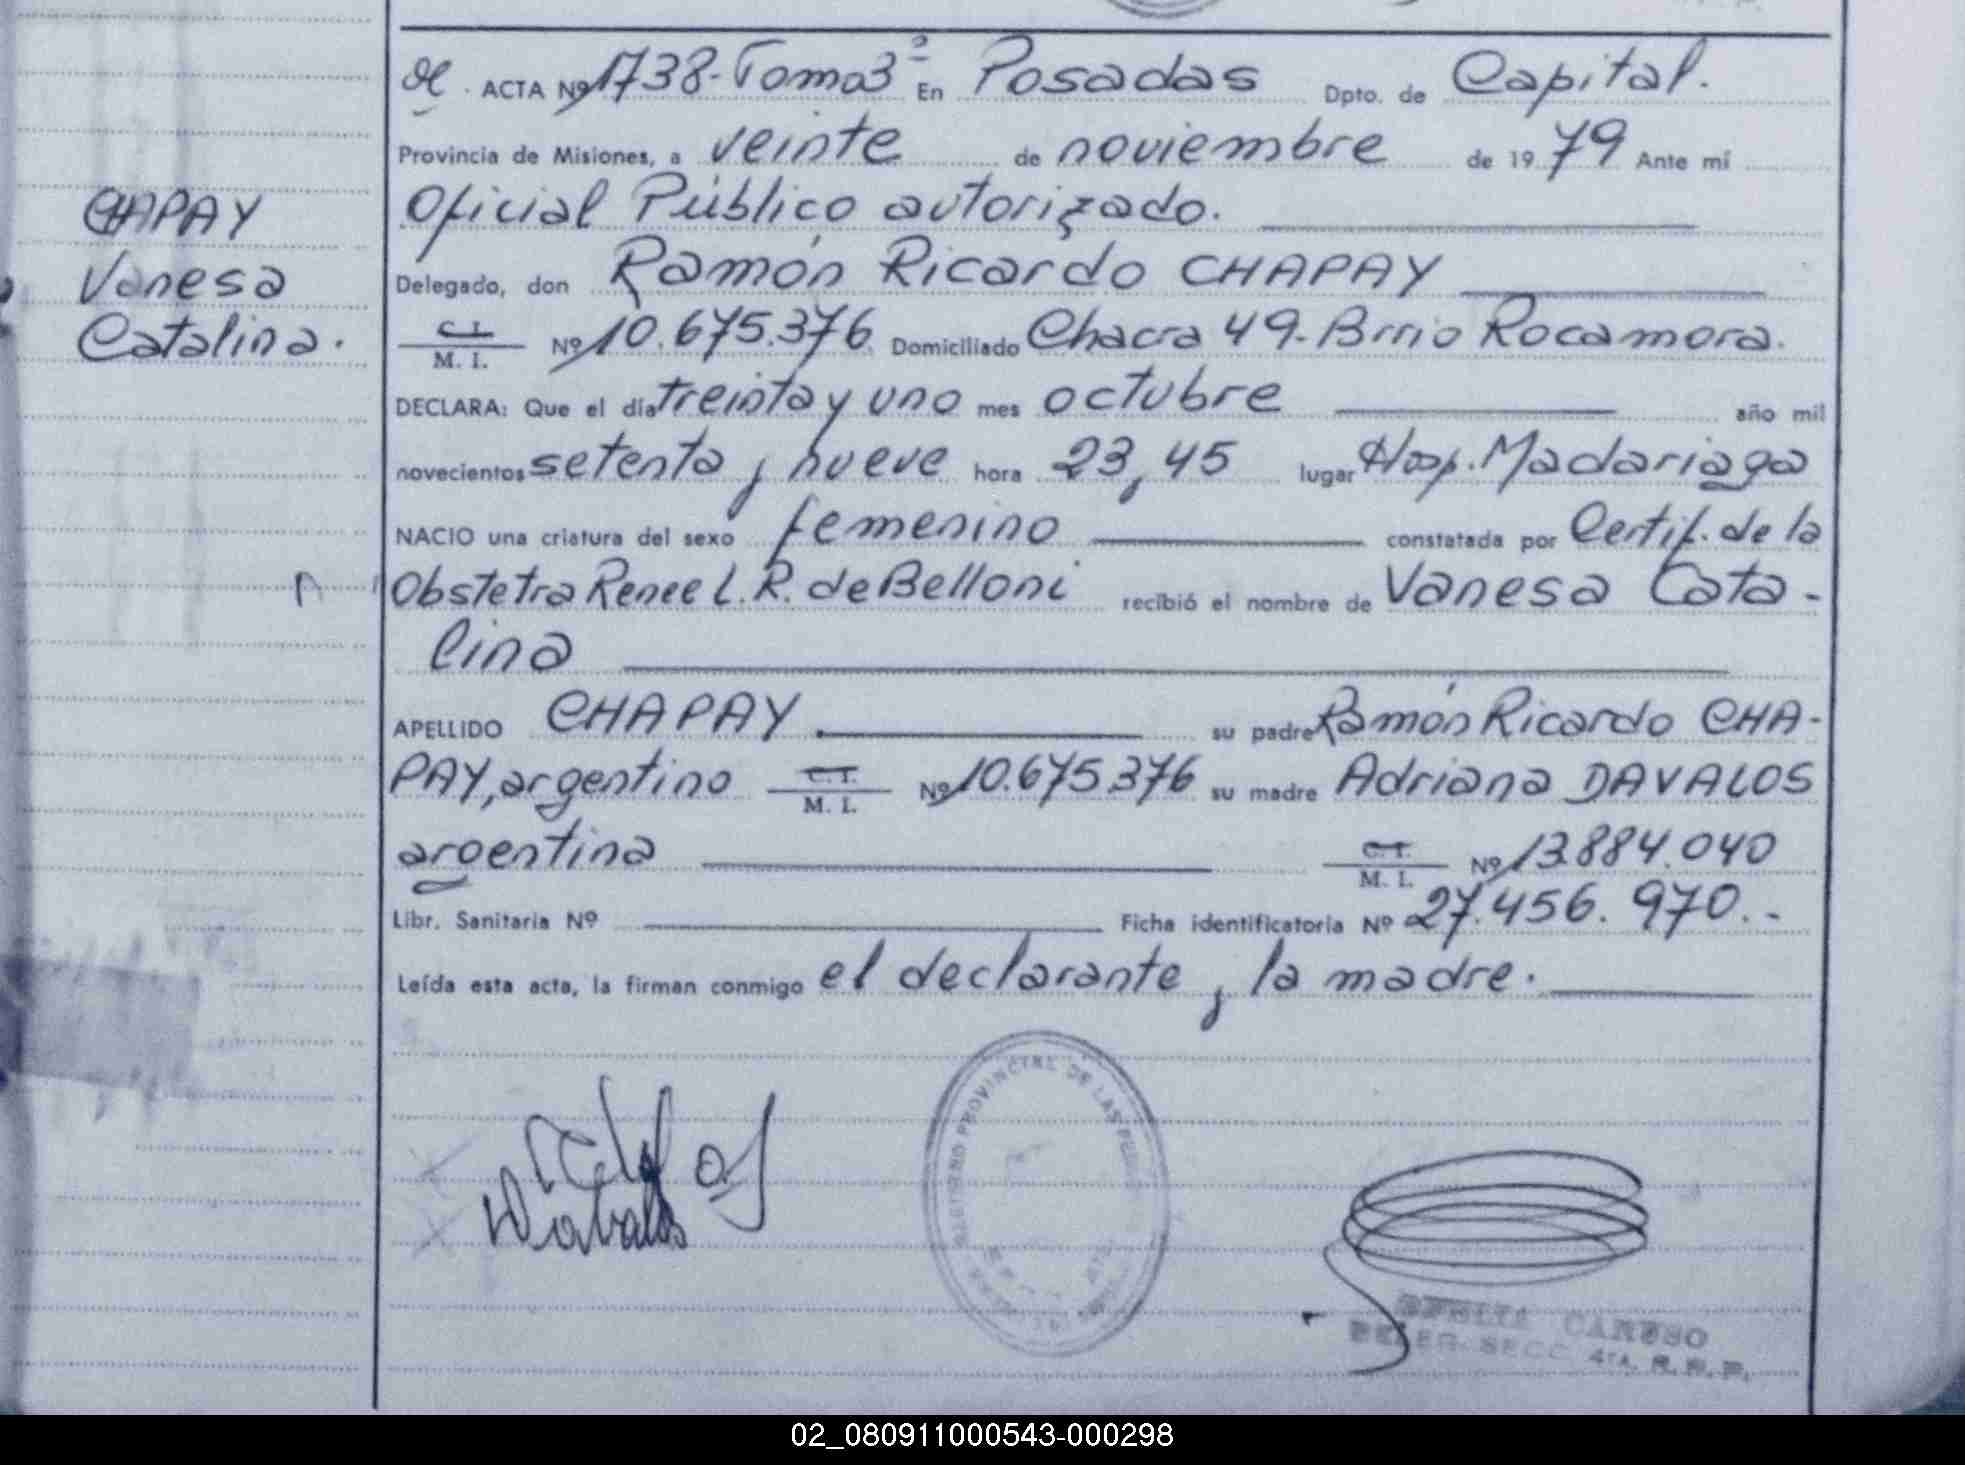 CHAPAY
Vanesa
Catalina.
ACTA Nº 1738-Tomo 3º En Posadas Dpto. de Capital.
Provincia de Misiones, a veinte de noviembre de 1979 Ante mí
Oficial Público autorizado.
Delegado, don Ramón Ricardo CHAPAY
C. I. M. I. Nº 10.675.376 Domiciliado Chacra 49-Brrio Rocamora.
DECLARA: Que el día treinta y uno mes octubre año mil
novecientos setenta y nueve hora 23,45 lugar Hosp. Madariaga
NACIO una criatura del sexo femenino constatada por Certif. de la
Obstetra Renee L. R. de Belloni recibió el nombre de Vanesa Cata-
lina
APELLIDO CHAPAY su padre Ramón Ricardo CHA-
PAY, argentino C. I. M. I. Nº 10.675.376 su madre Adriana DAVALOS
argentina C. I. M. I. Nº 13.884.040
Libr. Sanitaria Nº Ficha identificatoria Nº 27.456.970.-
Leída esta acta, la firman conmigo el declarante y la madre.
PROVINCIAL DE LAS
Davalos
CARUSO
DELEG. SECC 4TA. R.N.P.
02_080911000543-000298